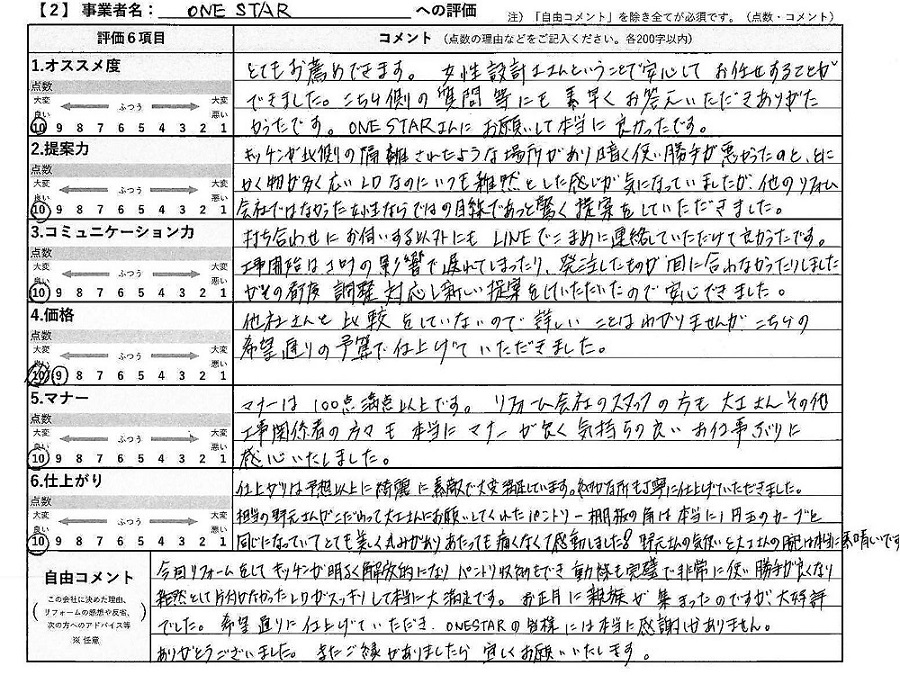 【2】事業者名： ONE STAR への評価
注）「自由コメント」を除き全てが必須です。（点数・コメント）
評価６項目
コメント（点数の理由などをご記入ください。各200字以内）
1.オススメ度
点数
大変良い ふつう 大変悪い
10 9 8 7 6 5 4 3 2 1
とてもお薦めできます。女性設計士さんということで安心してお任せすることが
できました。こちら側の質問等にも素早くお答えいただきありがた
かったです。ONE STARさんにお願いして本当に良かったです。
2.提案力
点数
大変良い ふつう 大変悪い
10 9 8 7 6 5 4 3 2 1
キッチンが北側の隔離されたような場所があり暗く使い勝手が悪かったのと、とに
かく物が多く広いLDなのにいつも雑然とした感じが気になっていましたが、他のリフォーム
会社ではなかった女性ならではの目線であっと驚く提案をしていただきました。
3.コミュニケーション力
点数
大変良い ふつう 大変悪い
10 9 8 7 6 5 4 3 2 1
打ち合わせにお伺いする以外にもLINEでこまめに連絡していただけて良かったです。
工事開始はコロナの影響で遅れてしまったり、発注したものが間に合わなかったりしました
がその都度調整対応し新しい提案をいただいたので安心できました。
4.価格
点数
大変良い ふつう 大変悪い
10 9 8 7 6 5 4 3 2 1
他社さんと比較をしていないので詳しいことはわかりませんがこちらの
希望通りの予算で仕上げていただきました。
5.マナー
点数
大変良い ふつう 大変悪い
10 9 8 7 6 5 4 3 2 1
マナーは100点満点以上です。リフォーム会社のスタッフの方も大工さんその他
工事関係者の方々も本当にマナーが良く気持ちの良いお仕事ぶりに
感心いたしました。
6.仕上がり
点数
大変良い ふつう 大変悪い
10 9 8 7 6 5 4 3 2 1
仕上がりは予想以上に綺麗に素敵で大変満足しています。細かな所も丁寧に仕上げていただきました。
担当の野元さんがこだわって大工さんにお願いしてくれたパントリー棚板の角は本当に1円玉のカーブと
同じになっていてとても美しく丸みがありあたっても痛くなくて感動しました！野元さんの気使いと大工さんの腕は本当に素晴しいです
自由コメント
この会社に決めた理由、
リフォームの感想や反省、
次の方へのアドバイス等
※ 任意
今回リフォームをしてキッチンが明るく解放的になりパントリ収納もでき動線も完璧で非常に使い勝手が良くなり
雑然として片付かなかったLDがスッキリして本当に大満足です。お正月に親族が集まったのですが、大好評
でした。希望通りに仕上げていただき、ONESTARの皆様には本当に感謝しかありません。
ありがとうございました。またご縁がありましたら宜しくお願いいたします。